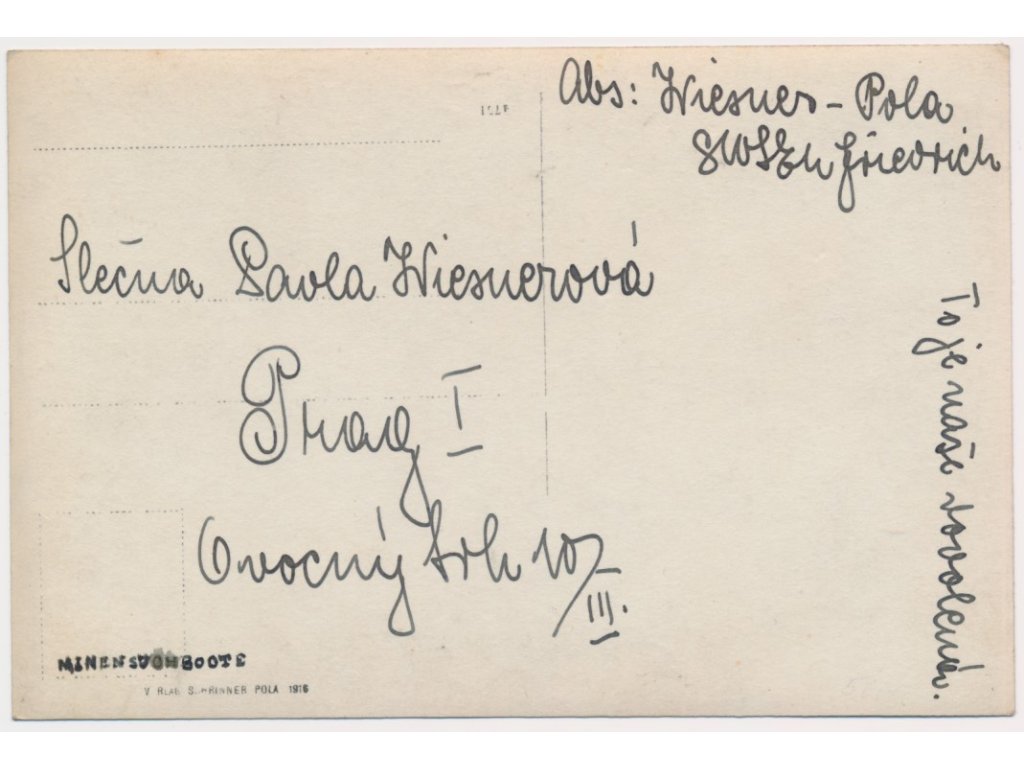 Abs: Wiesner - Pola
Friedrich
Slečna Pavla Wiesnerová
Prag I
Ovocný trh 10/III.
To je naše dovolená.
MINENSUCHBOOTE
POLA 1916